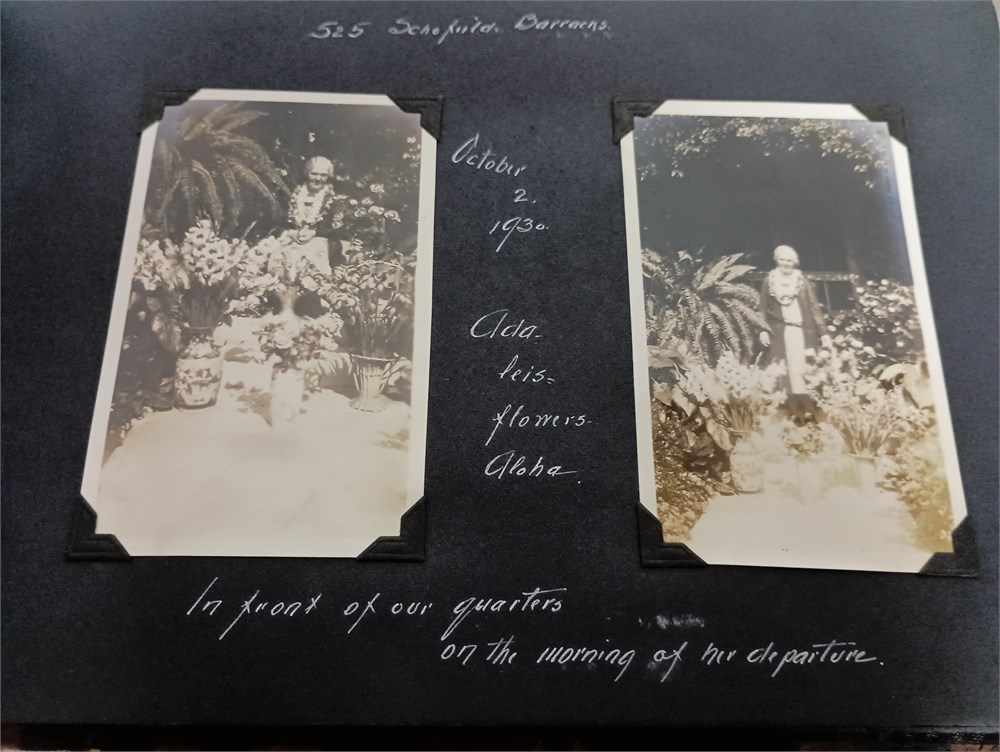 525 Schofield Barracks.
October
2.
1930.
Ada-
leis-
flowers-
Aloha.
In front of our quarters
on the morning of her departure.